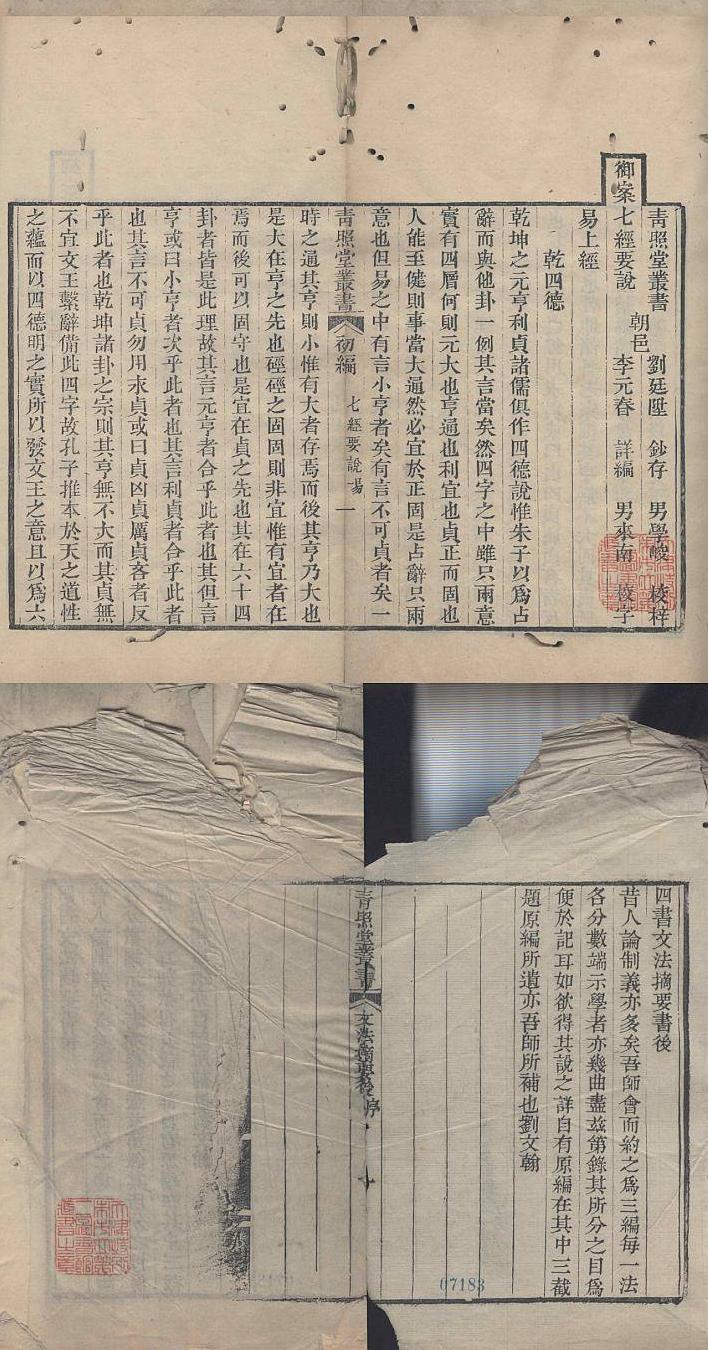 青照堂叢書
劉廷陞 鈔存 男學峻 校梓
御案七經要說
朝邑
李元春 詳編 男來南 校字
易上經
乾四德
乾坤之元亨利貞諸儒俱作四德說惟朱子以為占
辭而與他卦一例其言當矣然四字之中雖只兩意
實有四層何則元大也亨通也利宜也貞正而固也
人能至健則事當大通然必宜於正固是占辭只兩
意也但易之中有言小亨者矣有言不可貞者矣一
青照堂叢書 初編 七經要說易 一
時之通其亨則小惟有大者存焉而後其亨乃大也
是大在亨之先也硜硜之固固則非宜惟有宜者在
焉而後可以固守也是宜在貞之先也其在六十四
卦者皆是此理故其言元亨者合乎此者也其但言
亨或曰小亨者次乎此者也其言利貞者合乎此者
也其言不可貞勿用永貞或曰貞凶貞厲貞吝者反
乎此者也乾坤諸卦之宗則其亨無不大而其貞無
不宜文王繫辭備此四字故孔子推本於天之道性
之蘊而以四德明之實所以發文王之意且以為六
四書文法摘要書後
昔人論制義亦多矣吾師會而約之為三編每一法
各分數端示學者亦幾曲盡茲第錄其所分之目為
便於記耳如欲得其說之詳自有原編在其中三截
題原編所遺亦吾師所補也劉文翰
青照堂叢書 文法摘要後序
07183